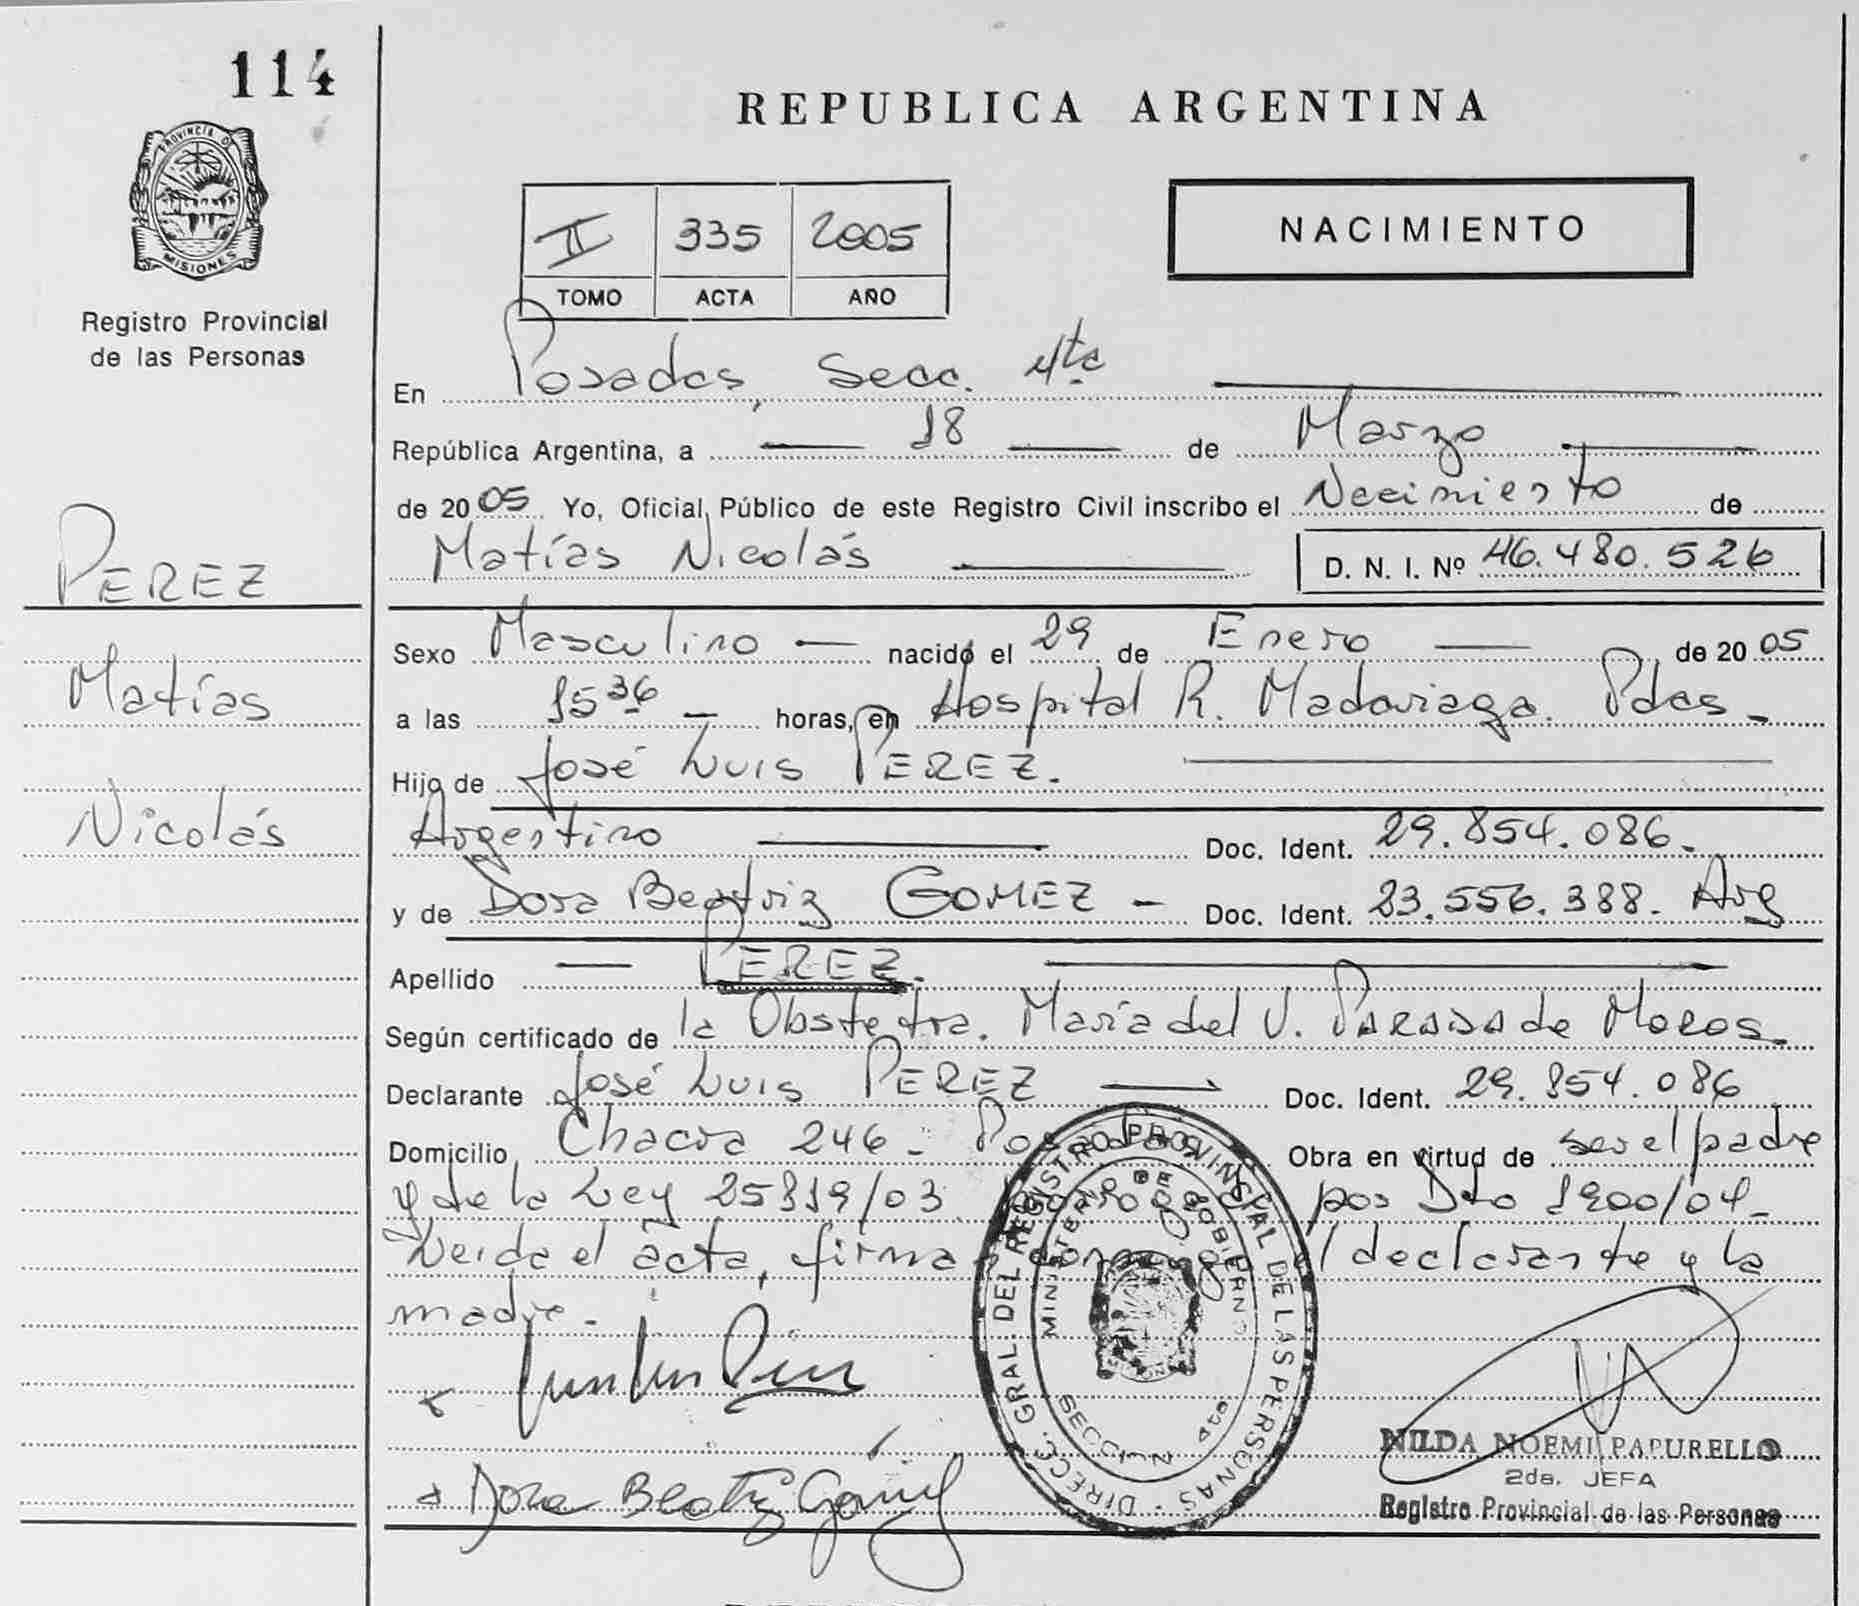 114
PROVINCIA DE
MISIONES
Registro Provincial
de las Personas
PEREZ
Matías
Nicolás
REPUBLICA ARGENTINA
II 335 2005
TOMO ACTA AÑO
NACIMIENTO
En Posadas, Secc. 4ta
República Argentina, a 18 de Marzo
de 2005 Yo, Oficial Público de este Registro Civil inscribo el Nacimiento de
Matías Nicolás D. N. I. Nº 46.480.526
Sexo Masculino nacido el 29 de Enero de 2005
a las 15 36 horas, en Hospital R. Madariaga. Pdas
Hijo de José Luis PEREZ.
Argentino Doc. Ident. 29.854.086.
y de Dora Beatriz GOMEZ - Doc. Ident. 23.556.388. Arg
Apellido PEREZ.
Según certificado de la Obstetra. María del V. PARADA de MOROS.
Declarante José Luis PEREZ Doc. Ident. 29.854.086
Domicilio Chacra 246 - Posadas Obra en virtud de ser el padre
y de la Ley 25819/03 por Dto 1900/04.
Leida el acta, firma conmigo el declarante y la
madre.
Dora Beatriz Gómez
DIRECC. GRAL. DEL REGISTRO PROVINCIAL DE LAS PERSONAS
MINISTERIO DE GOBIERNO
SECCION 4ta
NILDA NOEMI PAPURELLO
2da. JEFA
Registro Provincial de las Personas